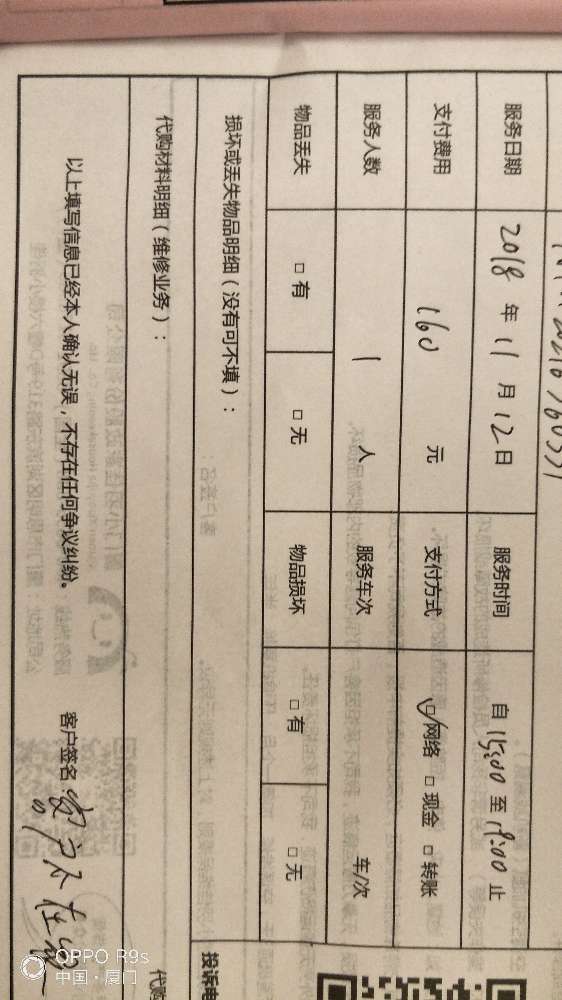 服务日期 2018 年 11 月 12 日 服务时间 自 15:00 至 19:00 止
支付费用 160 元 支付方式 ☑网络 □现金 □转账
服务人数 1 人 服务车次 车/次
物品丢失 □有 □无 物品损坏 □有 □无
损坏或丢失物品明细（没有可不填）：
代购材料明细（维修业务）：
以上填写信息已经本人确认无误，不存在任何争议纠纷。 客户签名: 客户不在家
投诉电
代购
OPPO R9s
中国·厦门